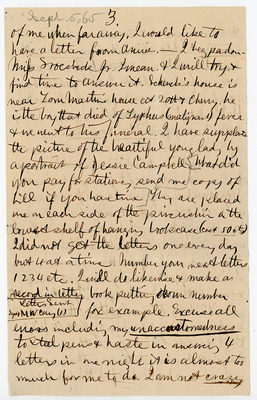 Sept. 5, 65
3.
of me when far away, I would like to
have a letter from Annie. — I beg pardon
Miss Jr. I mean. & I will try &
find time to answer it. house is
near Tom Martin's house cor 20th & Cherry. he
is the boy that died of Typhus (malignant) fever
& we went to his funeral. I have supplied
the picture of the beautiful young lady, by
a portrait of Jessie Campbell, What did
you pay for statues, send me copy of
bill if you have time they are placed
me on each side of the pincushion on the
lowest shelf of hanging bookcase
I did not get the letters one every day
but 4 at a time. Number your next letters
1 2 3 4 etc. I will do likewise & make a
record in letter book putting down number
Letters Sent
for example. Excuse all
errors including my unaccustomedness
to steel pen & haste in answering 4
letters in one night it is almost to
much for me to do. I am not crazy